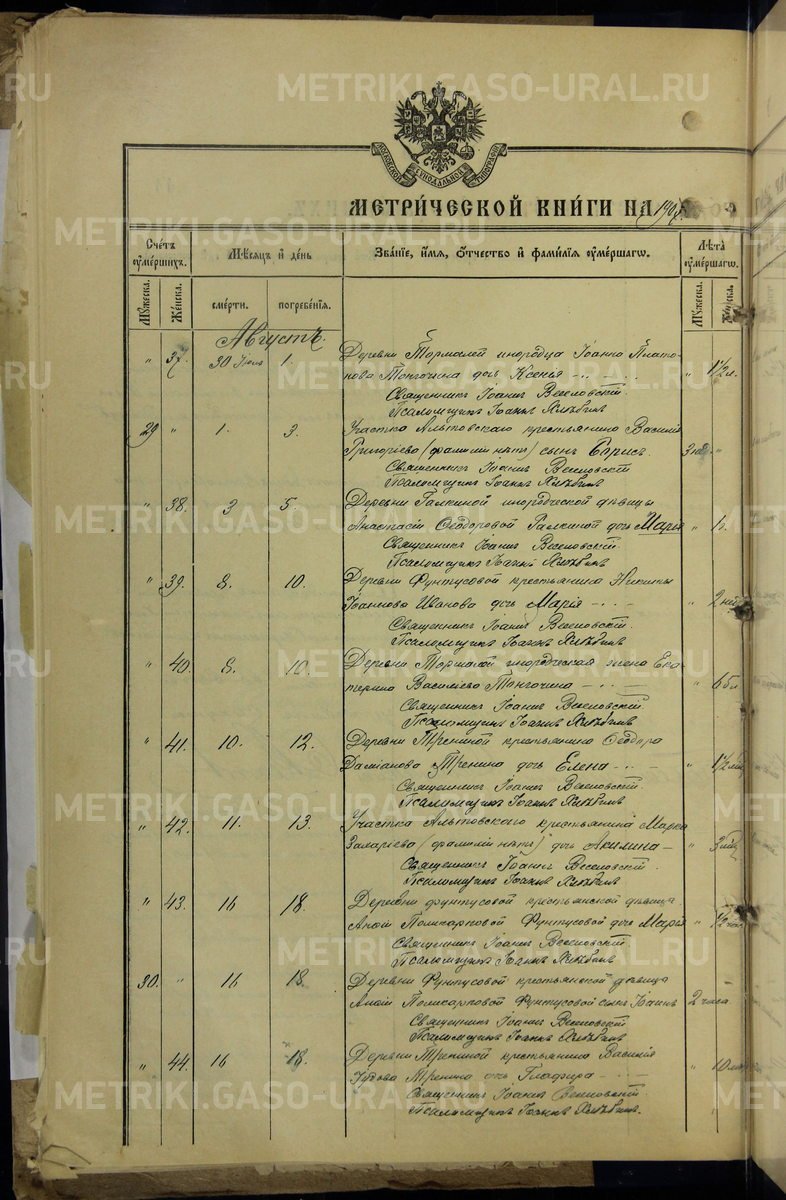 МОСКОВСКОЙ СѴНОДАЛЬНОЙ ТИПОГРАФІИ
МЕТРИ́ЧЕСКОЙ КНИ́ГИ НА 190
Счетъ ᲂумершихъ.
Мѣсяцъ и день
Званіе, имя, ѻтчество и фамилія ᲂумершагѡ.
Лѣта ᲂумершагѡ.
Мужеска. Женска. смерти. погребенія. Мужеска. Женска.
Августъ.
" 37. 30 Іюля 1. Деревни инородца Іоанна Плато-
нова Тонгочина дочь Ксенья " 1½ л.
Священникъ Іоаннъ Веселовскій.
Псаломщикъ Іоаннъ Хлѣбинъ
29 " 1. 3. Участка Альтовскаго крестьянина Василія
Григоріева (фамиліи нѣтъ) сынъ Борисъ. 3 "
Священникъ Іоаннъ Веселовскій
Псаломщикъ Іоаннъ Хлѣбинъ
" 38. 3 5. Деревни Галкиной инородческой дѣвицы
Анастасіи Ѳеодоровой Галкиной дочь Марія " 1 г.
Священникъ Іоаннъ Веселовскій.
Псаломщикъ Іоаннъ Хлѣбинъ
" 39. 8. 10. Деревни Фунтусовой крестьянина Никиты
Іоаннова Иванова дочь Марія " 2
Священникъ Іоаннъ Веселовскій.
Псаломщикъ Іоаннъ Хлѣбинъ
" 40. 8. 10. Деревни инородческая жена Ека-
терина Василіева Тонгочина " 65 л
Священникъ Іоаннъ Веселовскій
Псаломщикъ Іоаннъ Хлѣбинъ
" 41. 10. 12. Деревни Трениной крестьянина Ѳеодора
Даміанова Тренина дочь Елена " 1½
Священникъ Іоаннъ Веселовскій.
Псаломщикъ Іоаннъ Хлѣбинъ
" 42. 11. 13. Участка Альтовскаго крестьянина Марка
Захаріева (фамиліи нѣтъ) дочь Акилина " 3
Священникъ Іоаннъ Веселовскій
Псаломщикъ Іоаннъ Хлѣбинъ
" 43. 16 18. Деревни Фунтусовой крестьянской дѣвицы
Анны Поликарповой Фунтусовой дочь Марія " 1/2 часа
Священникъ Іоаннъ Веселовскій
Псаломщикъ Іоаннъ Хлѣбинъ
30. " 16 18. Деревни Фунтусовой крестьянской дѣвицы
Анны Поликарповой Фунтусовой сынъ Іоаннъ 2 часа
Священникъ Іоаннъ Веселовскій
Псаломщикъ Іоаннъ Хлѣбинъ
" 44. 16 18. Деревни Трениной крестьянина Василія
Тренина дочь Глафира " 10
Священникъ Іоаннъ Веселовскій
Псаломщикъ Іоаннъ Хлѣбинъ.
METRIKI.GASO-URAL.RU